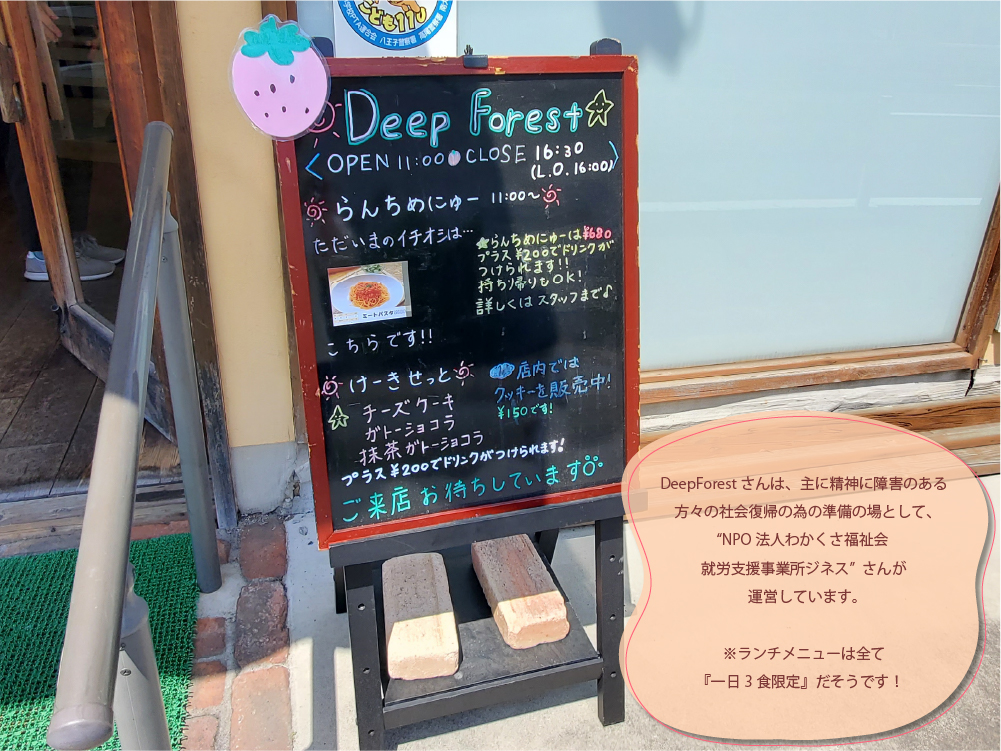 こども110
八王子警察署
Deep Forest
OPEN 11:00 CLOSE 16:30
(L.O. 16:00)
らんちめにゅー 11:00〜
ただいまのイチオシは…
ミートパスタ
こちらです!!
★らんちめにゅーは¥680
プラス¥200でドリンクが
つけられます!!
持ち帰りもOK!
詳しくはスタッフまで♪
けーきせっと
チーズケーキ
ガトーショコラ
抹茶ガトーショコラ
プラス¥200でドリンクがつけられます!
店内では
クッキーを販売中!
¥150です!
ご来店お待ちしています
DeepForestさんは、主に精神に障害のある
方々の社会復帰の為の準備の場として、
“NPO法人わかくさ福祉会
就労支援事業所ジネス”さんが
運営しています。
※ランチメニューは全て
『一日3食限定』だそうです！